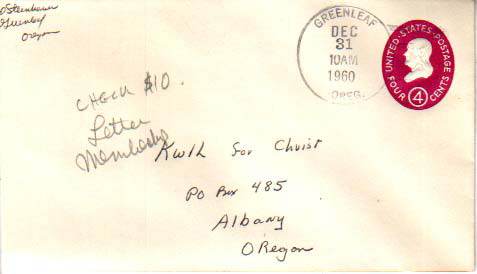 O Steenhauer
Greenleaf
Oregon
GREENLEAF
DEC
31
10AM
1960
OREG.
UNITED · STATES · POSTAGE
4
FOUR CENTS
CHECK $10.
Letter
Membership
for Christ
PO Box 485
Albany
ORegon